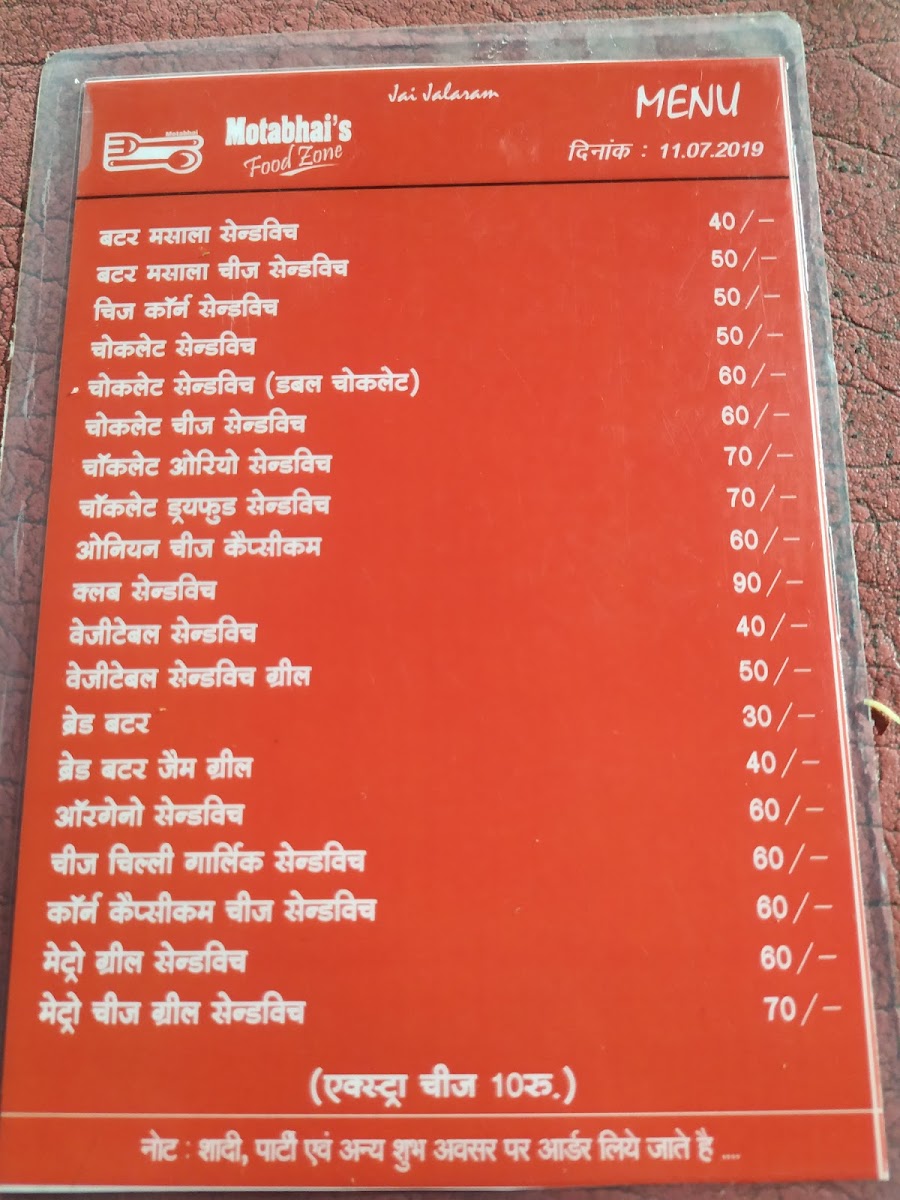 Jai Jalaram
MENU
Motabhai
Motabhai's
Food Zone
दिनांक : 11.07.2019
बटर मसाला सेन्डविच 40/-
बटर मसाला चीज सेन्डविच 50/-
चिज कॉर्न सेन्डविच 50/-
चोकलेट सेन्डविच 50/-
चोकलेट सेन्डविच (डबल चोकलेट) 60/-
चोकलेट चीज सेन्डविच 60/-
चॉकलेट ओरियो सेन्डविच 70/-
चॉकलेट ड्रयफुड सेन्डविच 70/-
ओनियन चीज कैप्सीकम 60/-
क्लब सेन्डविच 90/-
वेजीटेबल सेन्डविच 40/-
वेजीटेबल सेन्डविच ग्रील 50/-
ब्रेड बटर 30/-
ब्रेड बटर जैम ग्रील 40/-
ऑरगेनो सेन्डविच 60/-
चीज चिल्ली गार्लिक सेन्डविच 60/-
कॉर्न कैप्सीकम चीज सेन्डविच 60/-
मेट्रो ग्रील सेन्डविच 60/-
मेट्रो चीज ग्रील सेन्डविच 70/-
(एक्स्ट्रा चीज 10रु.)
नोट : शादी, पार्टी एवं अन्य शुभ अवसर पर आर्डर लिये जाते है ....